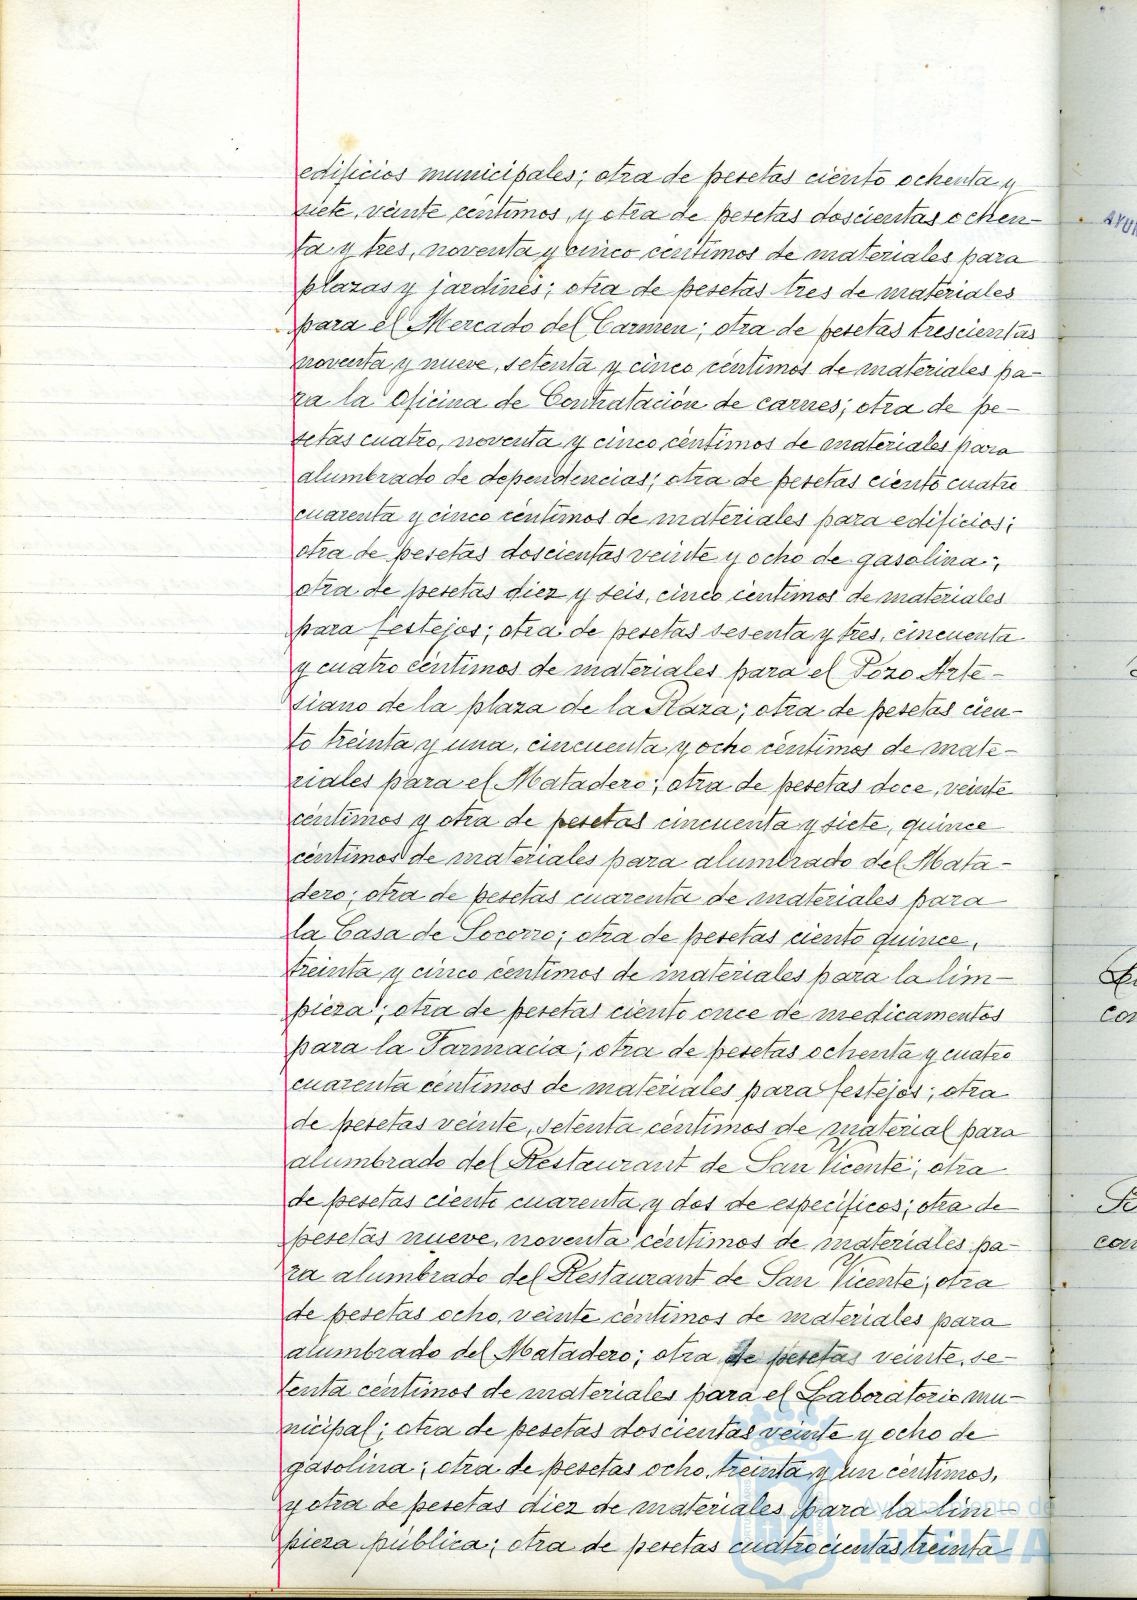 edificios municipales; otra de pesetas ciento ochenta y
siete, veinte céntimos, y otra de pesetas doscientas ochen-
ta y tres, noventa y cinco céntimos de materiales para
plazas y jardines; otra de pesetas tres de materiales
para el Mercado del Carmen; otra de pesetas trescientas
noventa y nueve, setenta y cinco céntimos de materiales pa-
ra la Oficina de Contratación de carnes; otra de pe-
setas cuatro, noventa y cinco céntimos de materiales para
alumbrado de dependencias; otra de pesetas ciento cuatro
cuarenta y cinco céntimos de materiales para edificios;
otra de pesetas doscientas veinte y ocho de gasolina;
otra de pesetas diez y seis, cinco céntimos de materiales
para festejos; otra de pesetas sesenta y tres, cincuenta
y cuatro céntimos de materiales para el Pozo Arte-
siano de la plaza de la Raza; otra de pesetas cien-
to treinta y una, cincuenta y ocho céntimos de mate-
riales para el Matadero; otra de pesetas doce, veinte
céntimos y otra de pesetas cincuenta y siete, quince
céntimos de materiales para alumbrado del Mata-
dero; otra de pesetas cuarenta de materiales para
la Casa de Socorro; otra de pesetas ciento quince,
treinta y cinco céntimos de materiales para la lim-
pieza; otra de pesetas ciento once de medicamentos
para la Farmacia; otra de pesetas ochenta y cuatro
cuarenta céntimos de materiales para festejos; otra
de pesetas veinte, setenta céntimos de material para
alumbrado del Restaurant de San Vicente; otra
de pesetas ciento cuarenta y dos de específicos; otra de
pesetas nueve, noventa céntimos de materiales pa-
ra alumbrado del Restaurant de San Vicente; otra
de pesetas ocho, veinte céntimos de materiales para
alumbrado del Matadero; otra de pesetas veinte, se-
tenta céntimos de materiales para el Laboratorio mu-
nicipal; otra de pesetas doscientas veinte y ocho de
gasolina; otra de pesetas ocho, treinta y un céntimos,
y otra de pesetas diez de materiales para la lim-
pieza pública; otra de pesetas cuatrocientas treinta
Ayuntamiento de
HUELVA